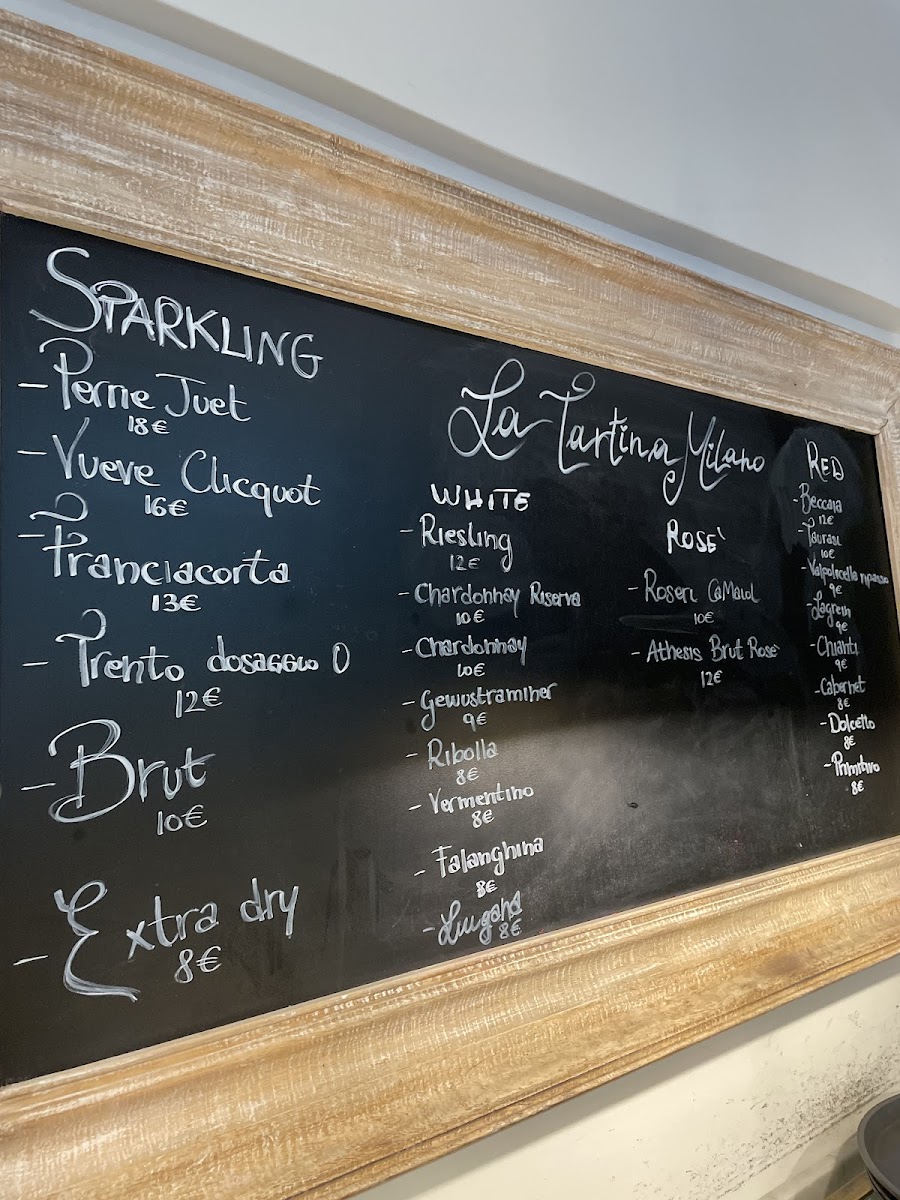 SPARKLING
- Perrie Juet
18€
- Vueve Clicquot
16€
- Franciacorta
13€
- Trento dosaggio 0
12€
- Brut
10€
- Extra dry
8€
La Tartina Milano
WHITE
- Riesling
12€
- Chardonnay Riserva
10€
- Chardonnay
10€
- Gewustraminer
9€
- Ribolla
8€
- Vermentino
8€
- Falanghina
8€
- Lugana
8€
ROSE'
- Roseri CaMaiol
10€
- Athesis Brut Rose'
12€
RED
- Beccaia
12€
- Taurasi
10€
- Valpolicella ripasso
9€
- Lagrein
9€
- Chianti
9€
- Cabernet
8€
- Dolcetto
8€
- Primitivo
8€